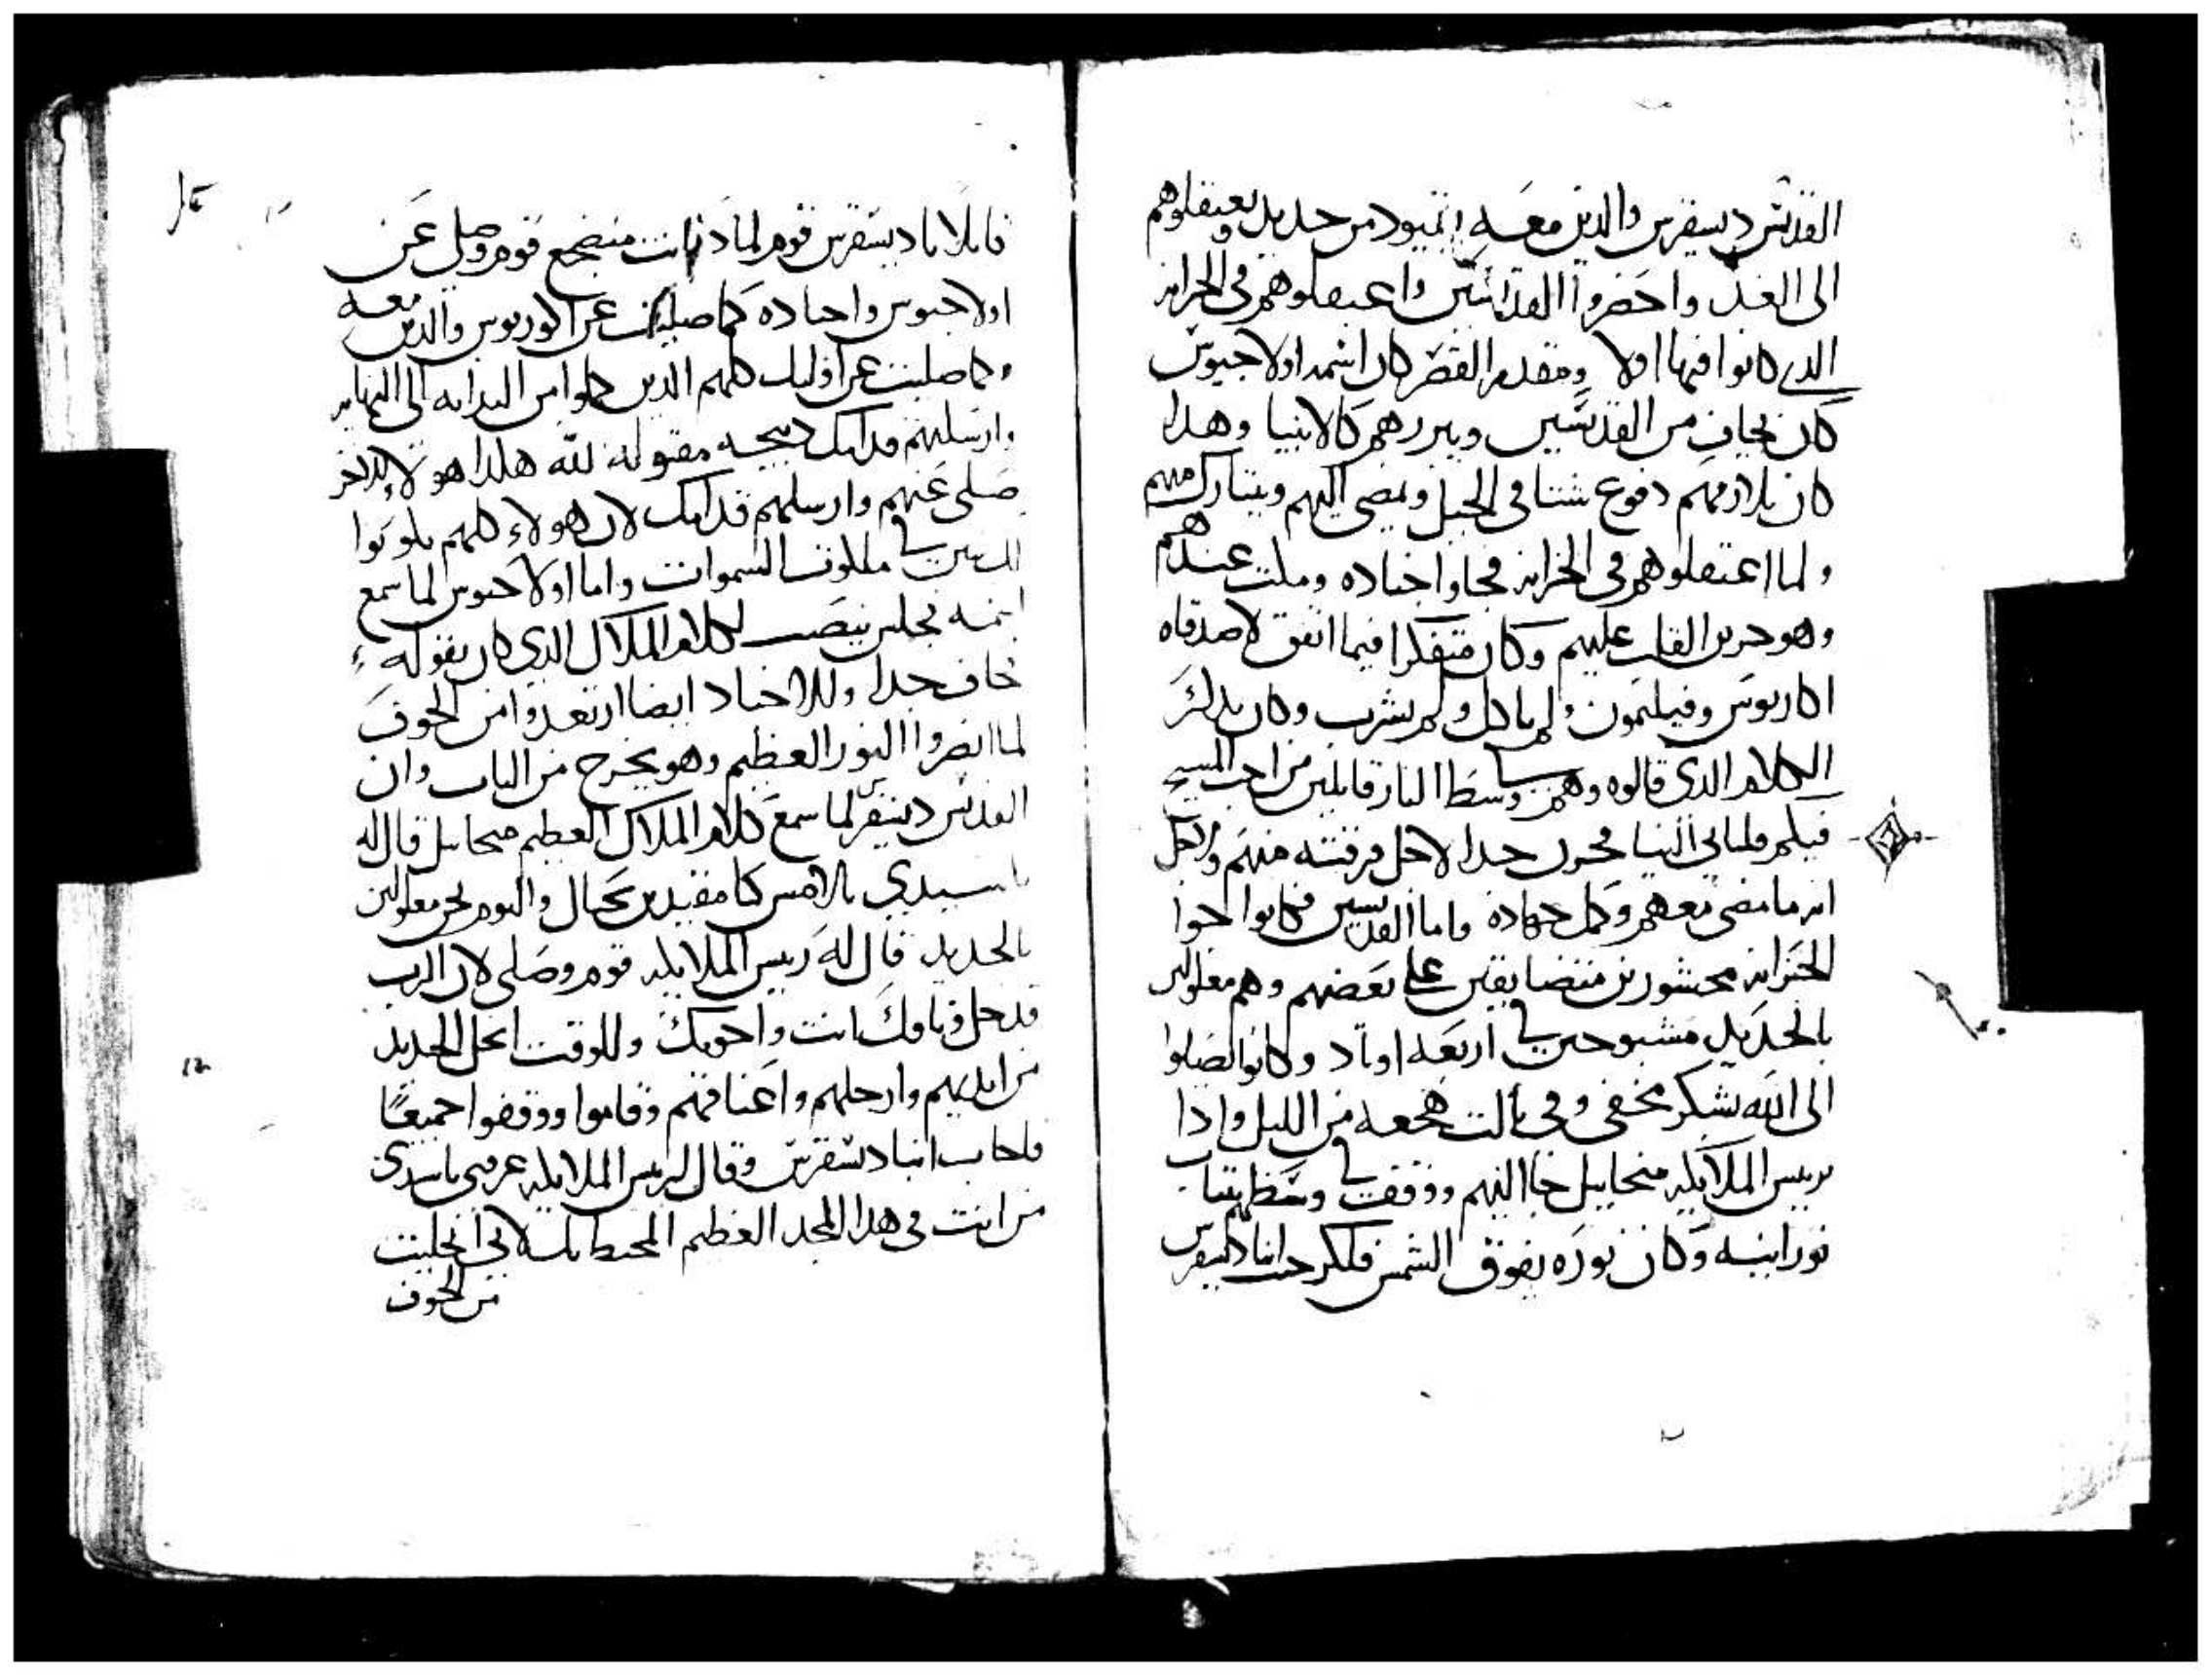 القديس ديسقرس والذين معه بقيود من حديد ويعتقلوهم
الى الغد واحضروا القديسين واعتقلوهم في الخزانه
الذي كانوا فيها اولا ومقدم القصر كان اسمه اولاجيوس
كان يخاف من القديسين ويبررهم كالانبيا وهذا
كان يلازمهم دفوع شتا في الجبل ويمضي اليهم ويتبارك منهم
ولما اعتقلوهم في الخزانه فجا واجناده ومكت عندهم
وهو حزين القلب عليهم وكان متفكرا فيما اتفق لاصدقاه
اكاريوس وفيليمون ولم ياكل ولم يشرب وكان يذكر
الكلام الذي قالوه وهم وسط النار قايلين من احب المسيح
فيلم وليأتي الينا فحزن جدا لاجل فرقته منهم ولاجل
انه ما مضى معهم وكمل جهاده واما القديسين فكانوا جوا
الخزانه محشورين متضايقين على بعضهم وهم مغلولين
بالحديد مشبوحين في اربعه اوتاد وكانوا يصلوا
الى الله بشكر مخفي وفي تالت هجعه من الليل واذا
بريس الملايكه ميخاييل جا اليهم ووقف في وسطهم بثياب
نورانيه وكان نوره يفوق الشمس فلكز جنب انبا ديسقرس
قايلا يا ديسقرس قوم لماذا انت منضجع قوم وصل عن
اولاجيوس واجناده كما صليت عن اكوريوس والذين معه
وكما صليت عن اوليك كلهم الذين كملوا من البدايه الى النهايه
وارسلتهم قدامك دبيحه مقبوله لله هكذا هولاء الاخر
صلي عنهم وارسلهم قدامك لان هولاء كلهم يكونوا
في ملكوت السموات واما اولاجيوس لما سمع
فجلس ينصت لكلام الملاك الذي كان يقوله
خاف جدا والاجناد ايضا ارتعدوا من الخوف
لما ابصروا النور العظيم وهو يخرج من الباب وان
القديس ديسقرس لما سمع كلام الملاك العظيم ميخاييل قال له
يا سيدي بالامس كنا مقيدين بحبال واليوم نحن مغلولين
بالحديد قال له ريس الملايكه قوم وصلي لان الرب
قد حل وثاقك انت واخوتك وللوقت انحل الحديد
من ايديهم وارجلهم واعناقهم وقاموا ووقفوا جميعًا
فاجاب انبا ديسقرس وقال لريس الملايكه عرفني يا سيدي
من انت في هذا المجد العظيم المحيط بك لاني انحليت
من الخوف